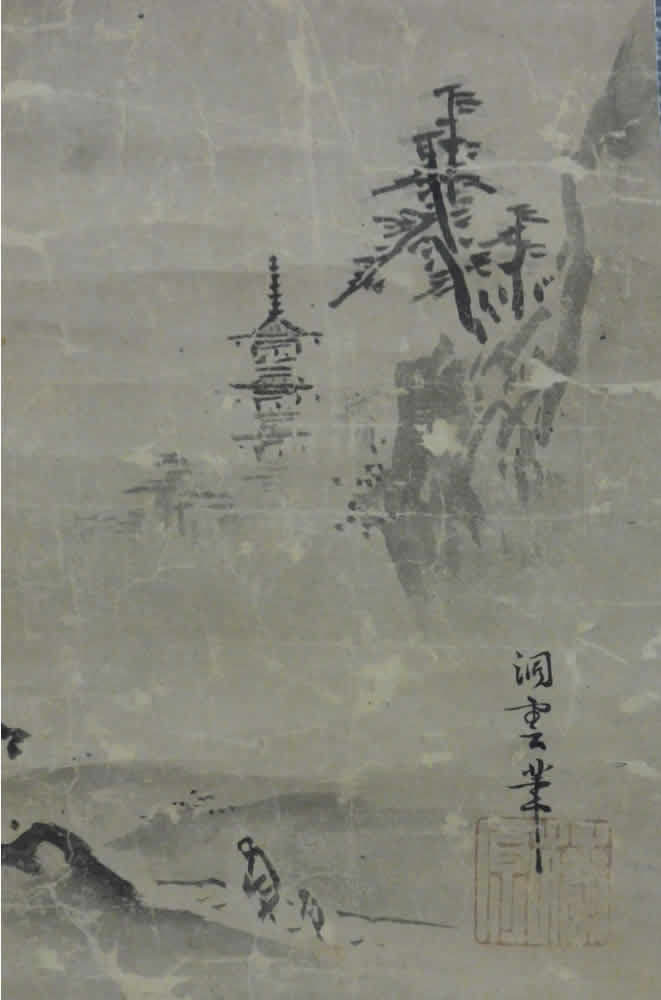 洞雲筆